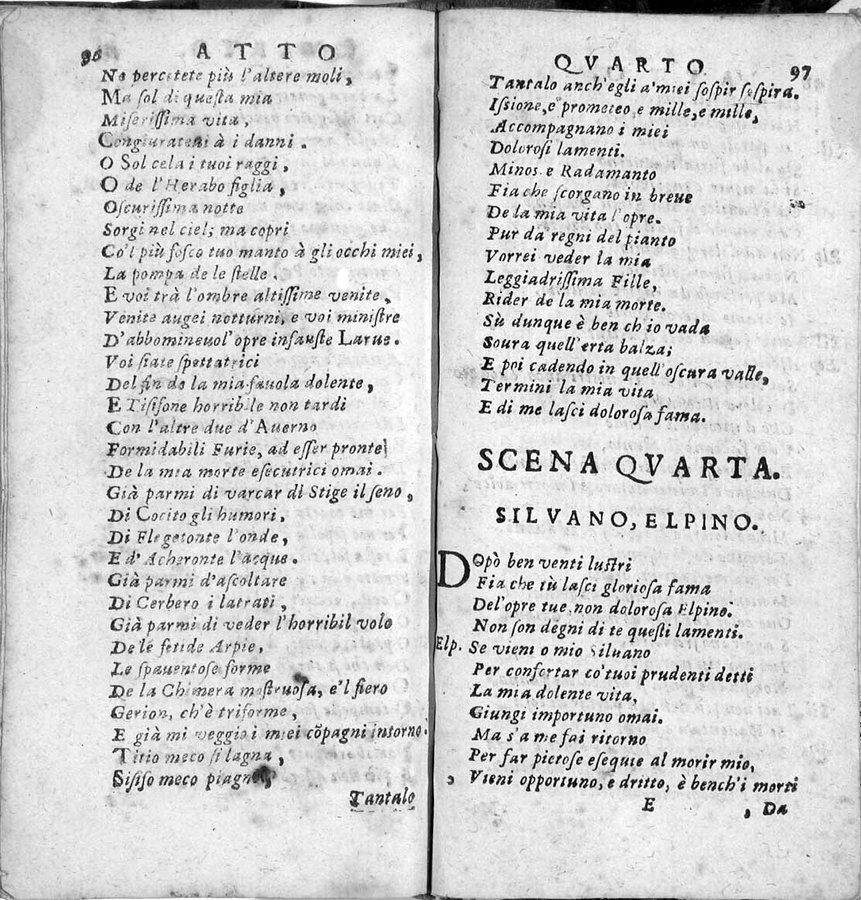 96 ATTO
No percotete più l'altere moli,
Ma sol di questa mia
Miserissima vita,
Congiuratevi à i danni.
O Sol cela i tuoi raggi,
O de l'Herabo figlia,
Oscurissima notte
Sorgi nel ciel; ma copri
Co'l più fosco tuo manto à gli occhi miei,
La pompa de le stelle.
E voi trà l'ombre altissime venite,
Venite augei notturni, e voi ministre
D'abbomineuol'opre infauste Larue.
Voi siate spettatrici
Del fin de la mia fauola dolente,
E Tisifone horribile non tardi
Con l'altre due d'Auerno
Formidabili Furie, ad esser pronte
De la mia morte esecutrici omai.
Già parmi di varcar di Stige il seno,
Di Cocito gli humori,
Di Flegetonte l'onde,
E d'Acheronte l'acque.
Già parmi d'ascoltare
Di Cerbero i latrati,
Già parmi di veder l'horribil volo
De le fetide Arpie,
Le spauentose forme
De la Chimera mostruosa, e'l fiero
Gerion, ch'è triforme,
E già mi veggio i miei cõpagni intorno.
Titio meco si lagna,
Sisifo meco piagne,
Tantalo
QVARTO 97
Tantalo anch'egli a'miei sospir sospira.
Issione, e prometeo, e mille, e mille,
Accompagnano i miei
Dolorosi lamenti.
Minos e Radamanto
Fia che scorgano in breue
De la mia vita l'opre.
Pur da regni del pianto
Vorrei veder la mia
Leggiadrissima Fille,
Rider de la mia morte.
Sù dunque è ben ch'io vada
Soura quell'erta balza;
E poi cadendo in quell'oscura valle,
Termini la mia vita
E di me lasci dolorosa fama.
SCENA QVARTA.
SILVANO, ELPINO.
DOpò ben venti lustri
Fia che tù lasci gloriosa fama
Del'opre tue, non dolorosa Elpino.
Non son degni di te questi lamenti.
Elp. Se vieni o mio Siluano
Per confortar co'tuoi prudenti detti
La mia dolente vita,
Giungi importuno omai.
Ma s'a me fai ritorno
Per far pietose esequie al morir mio,
Vieni opportuno, e dritto, è bench'i morti
E Da